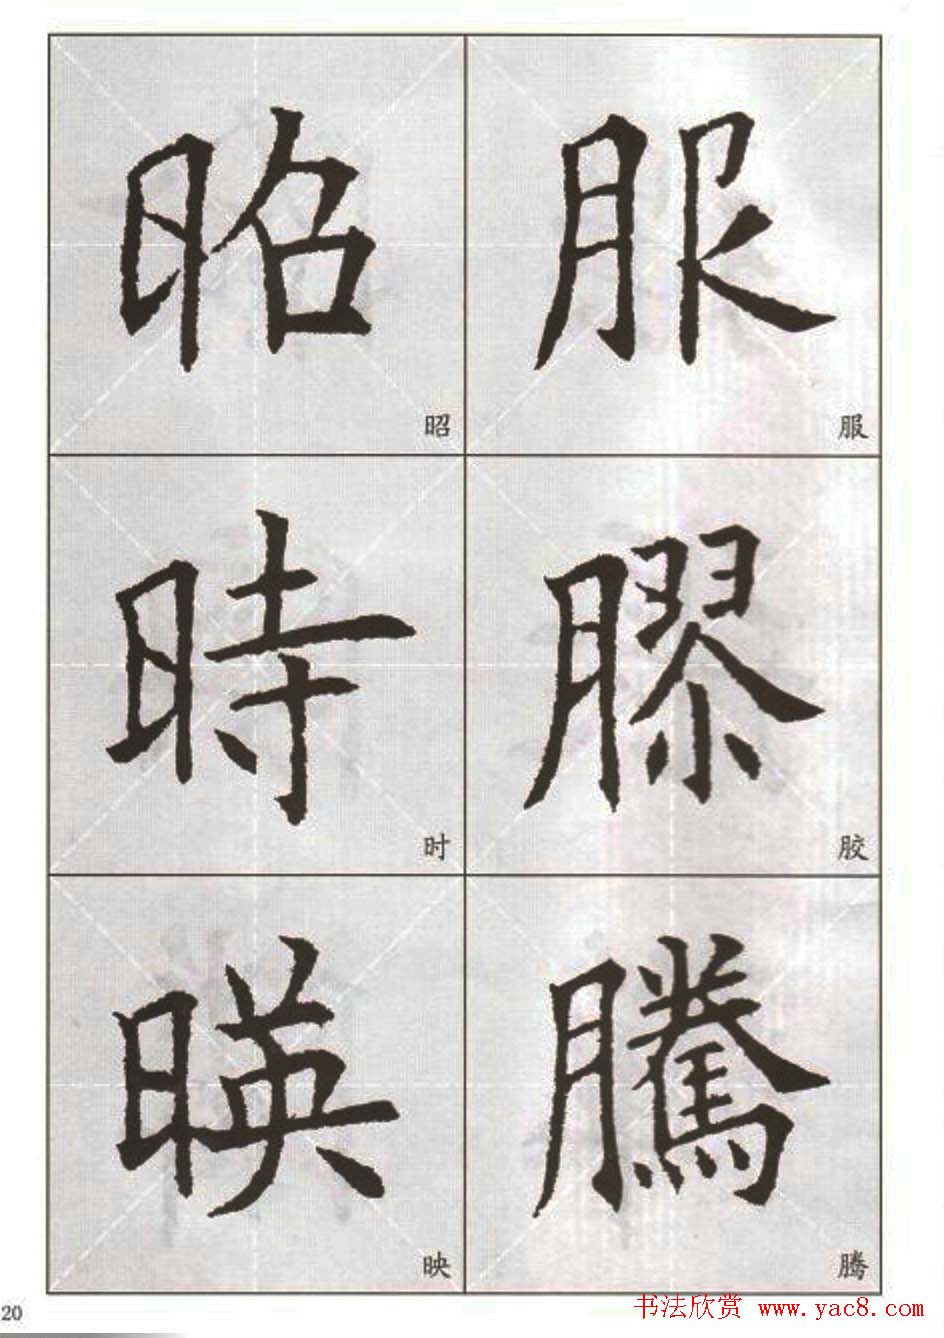 昭 服
昭 服
時 膠
时 胶
暎 騰
映 腾
20
书法欣赏 www.yac8.com